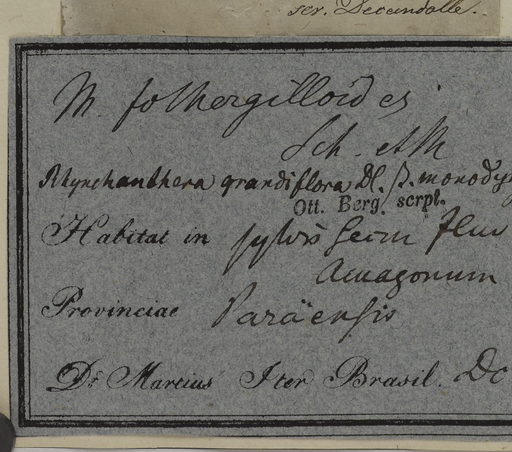 scr. Decandolle.
M. fothergilloides
Sch. et M
Rhynchanthera grandiflora DC. β. monody
Ott. Berg. scrpt.
Habitat in sylvis secus fluv
Amazonum
Provinciae Paraënsis
Dr. Martius Iter Brasil. Dc